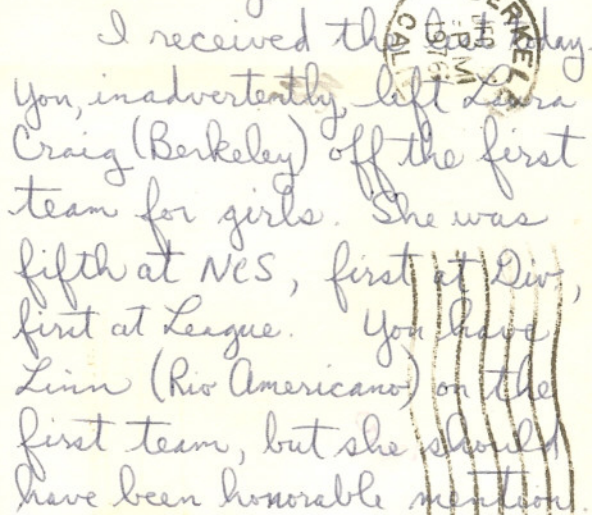 I received the list today.
You, inadvertently, left Laura
Craig (Berkeley) off the first
team for girls. She was
fifth at NCS, first at Div,
first at League. You have
Linn (Rio Americano) on the
first team, but she should
have been honorable mention.
BERKEL
PM
CAL